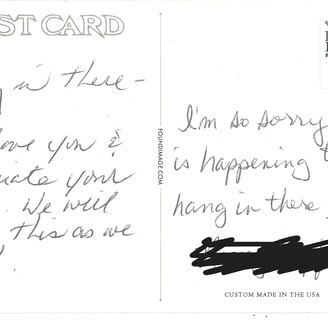 ST CARD
in there –
love you &
your
We will
this as we
FOUNDIMAGE.COM
I'm so sorry
is happening
hang in there
CUSTOM MADE IN THE USA